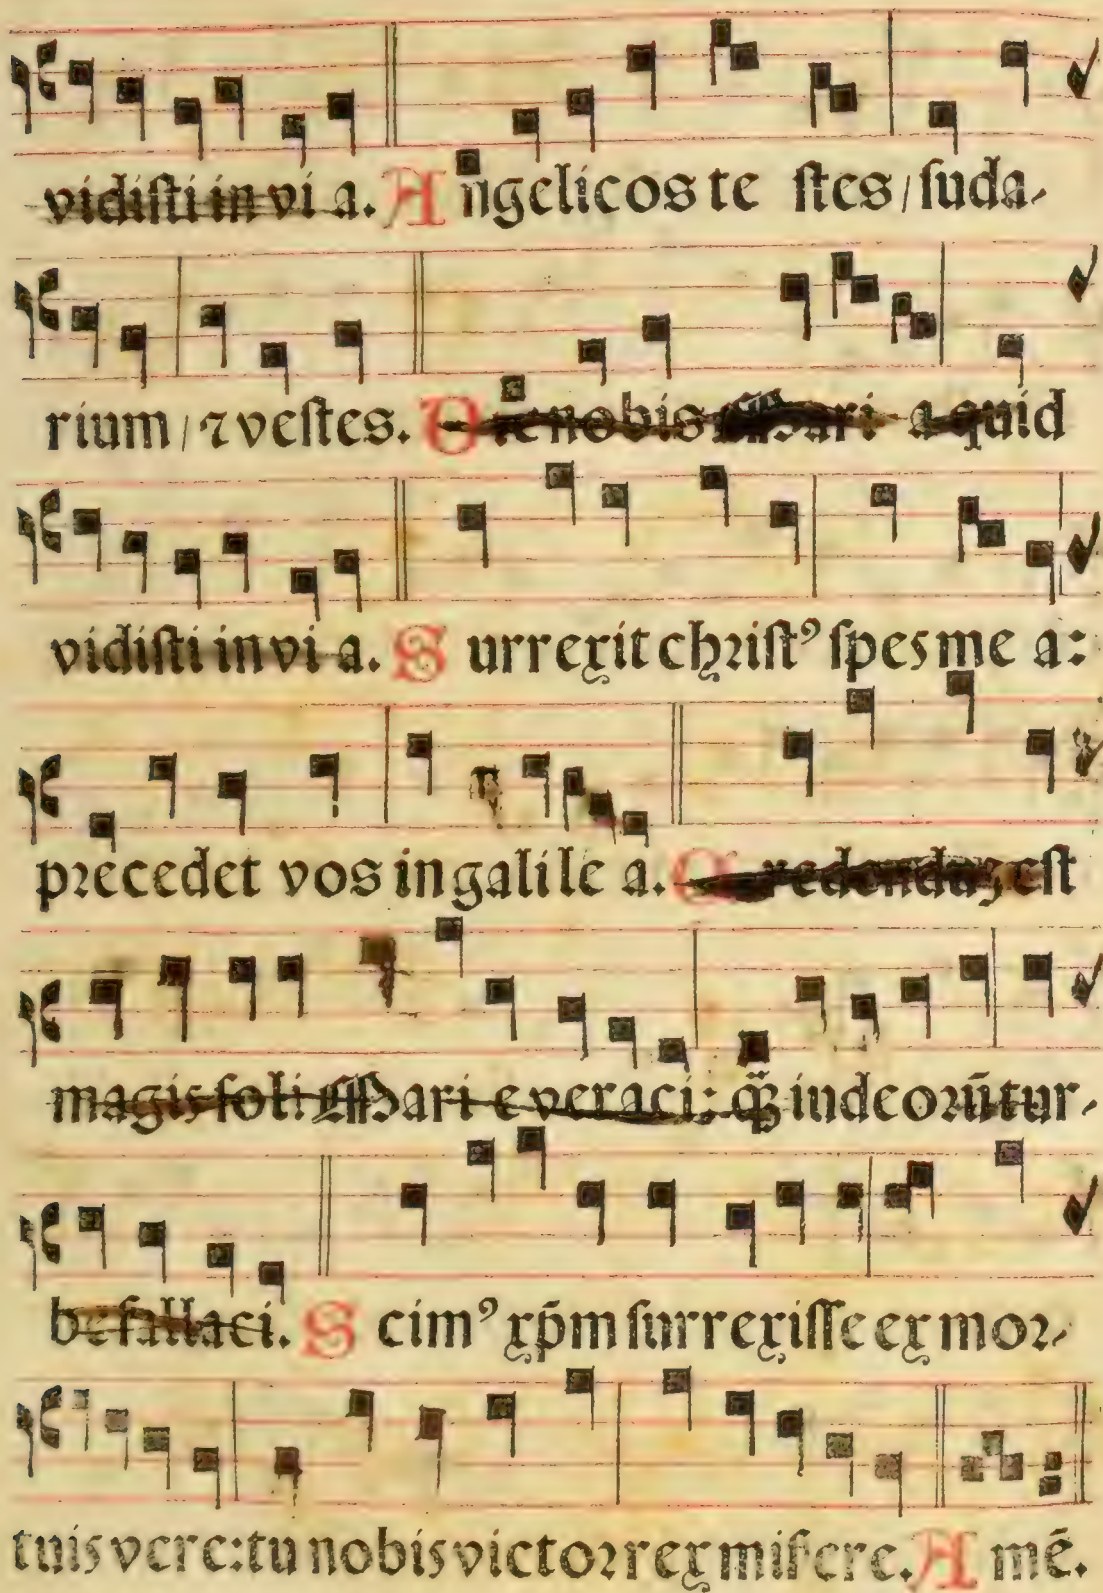 vidisti in vi a. A ngelicos te stes / suda-
rium / ⁊ vestes. D ic nobis Mari a quid
vidisti in vi a. S urrexit christꝰ spes me a:
precedet vos in galile a. C redenduꝫ est
magis soli Mari e veraci: q̃ꝫ iudeorū tur-
be fallaci. S cimꝰ xp̄m surrexisse ex mor-
tuis vere: tu nobis victor rex misere. A mē.